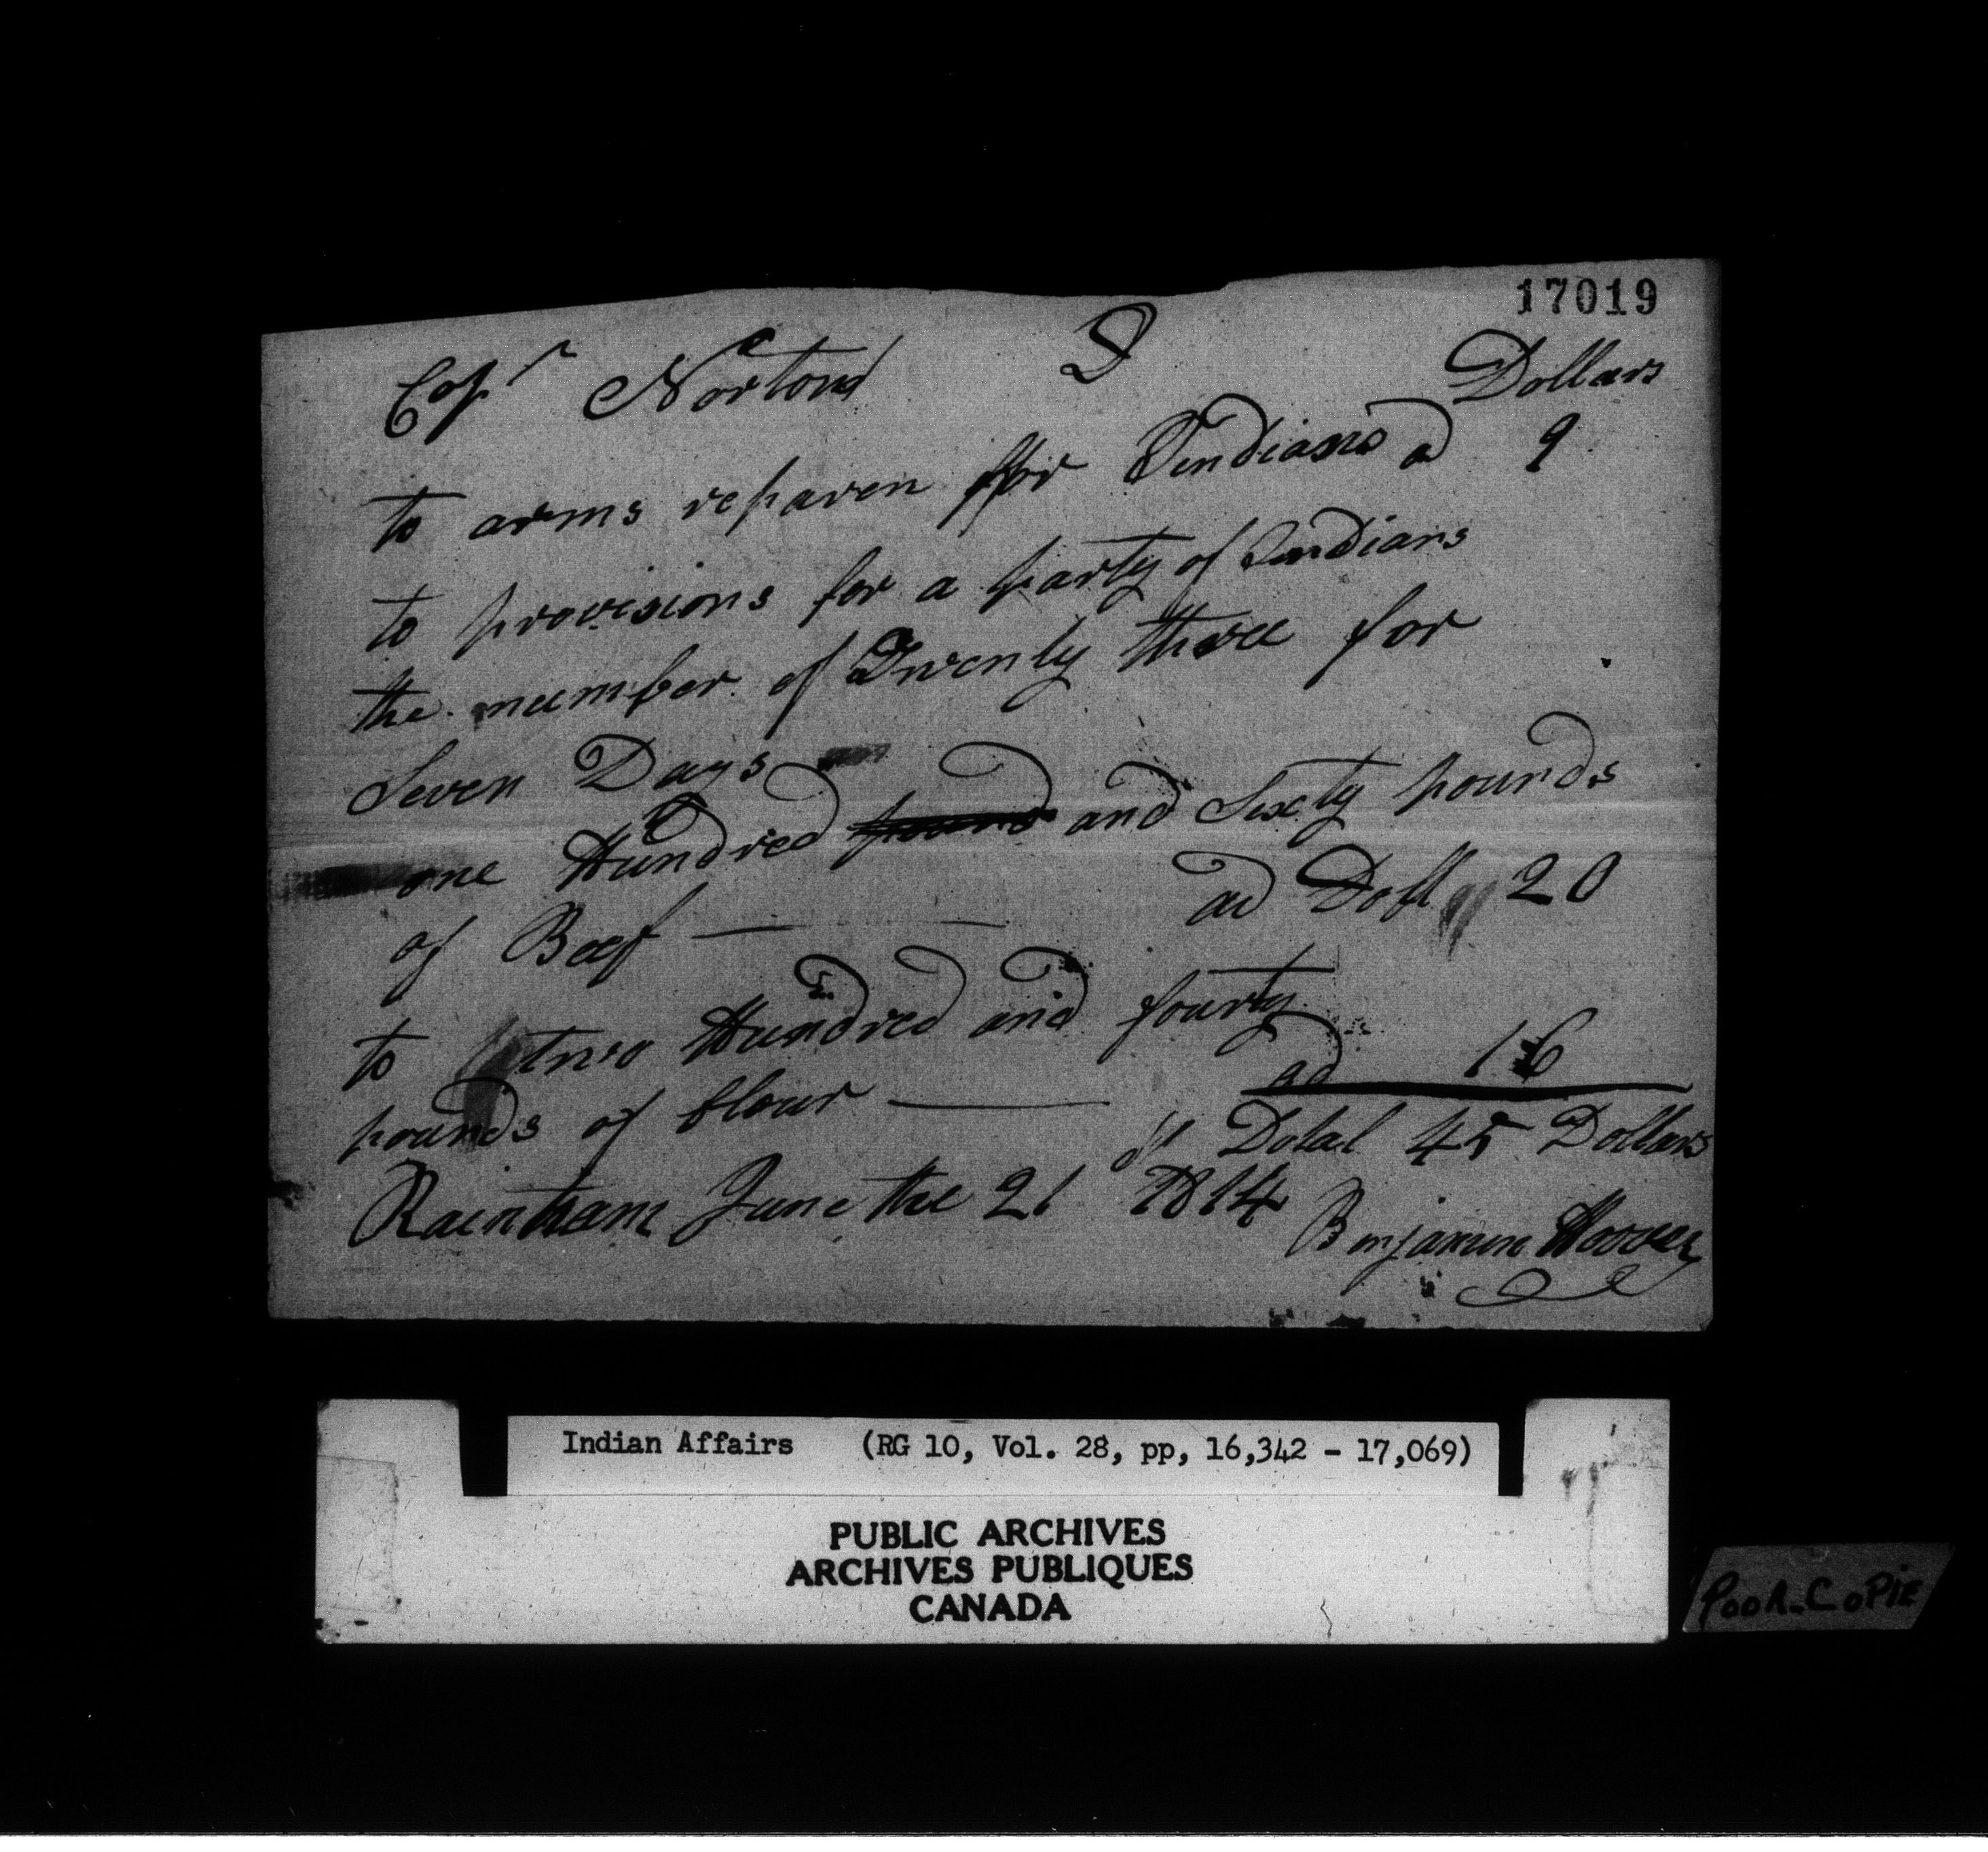 17019
Capt Norton D Dollars
to arms reparen for Indians ad 9
to provisions for a party of Indians
the number of Twenty three for
Seven Days
one Hundred and Sixty pounds
of Beef — — ad Doll 20
to two Hundred and fourty
pounds of flour — ad 16
Dotal 45 Dollars
Raenham June the 21 1814
Benjamin Hoover
Indian Affairs (RG 10, Vol. 28, pp, 16,342 - 17,069)
PUBLIC ARCHIVES
ARCHIVES PUBLIQUES
CANADA
POOR-COPIE